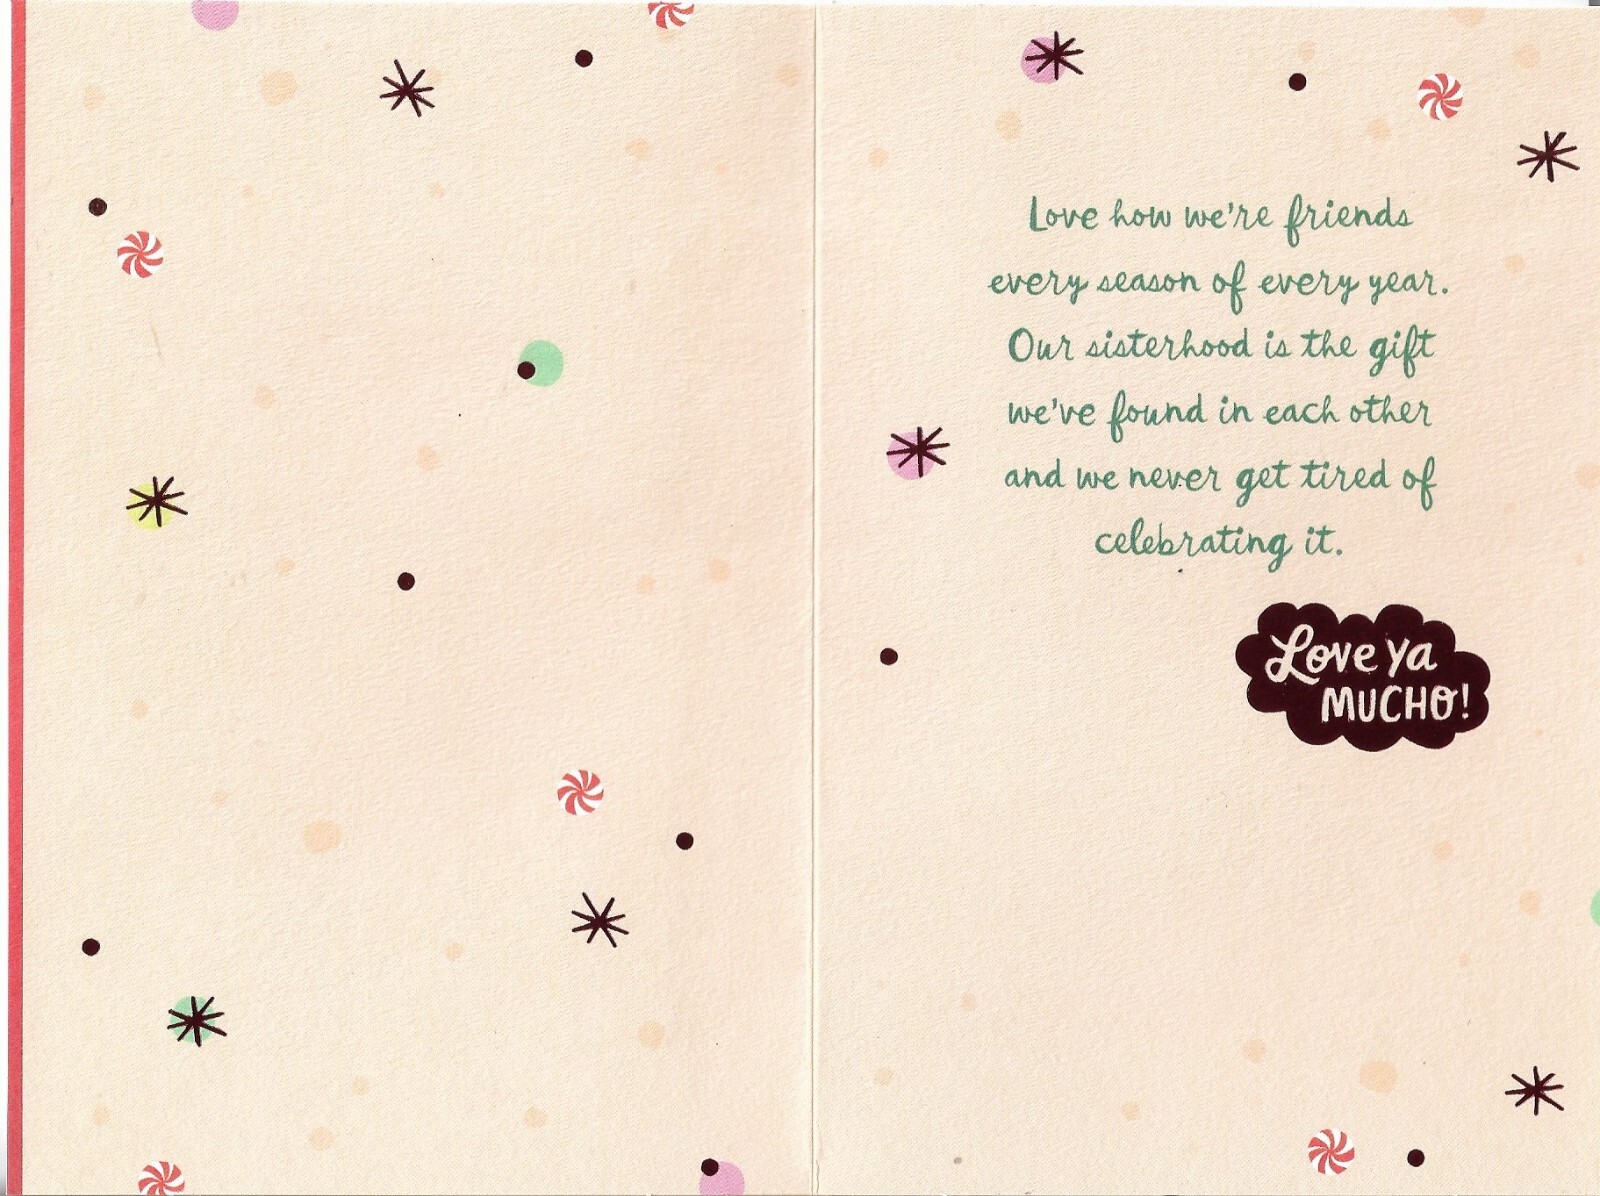 Love how we're friends
every season of every year.
Our sisterhood is the gift
we've found in each other
and we never get tired of
celebrating it.
Love ya
MUCHO!